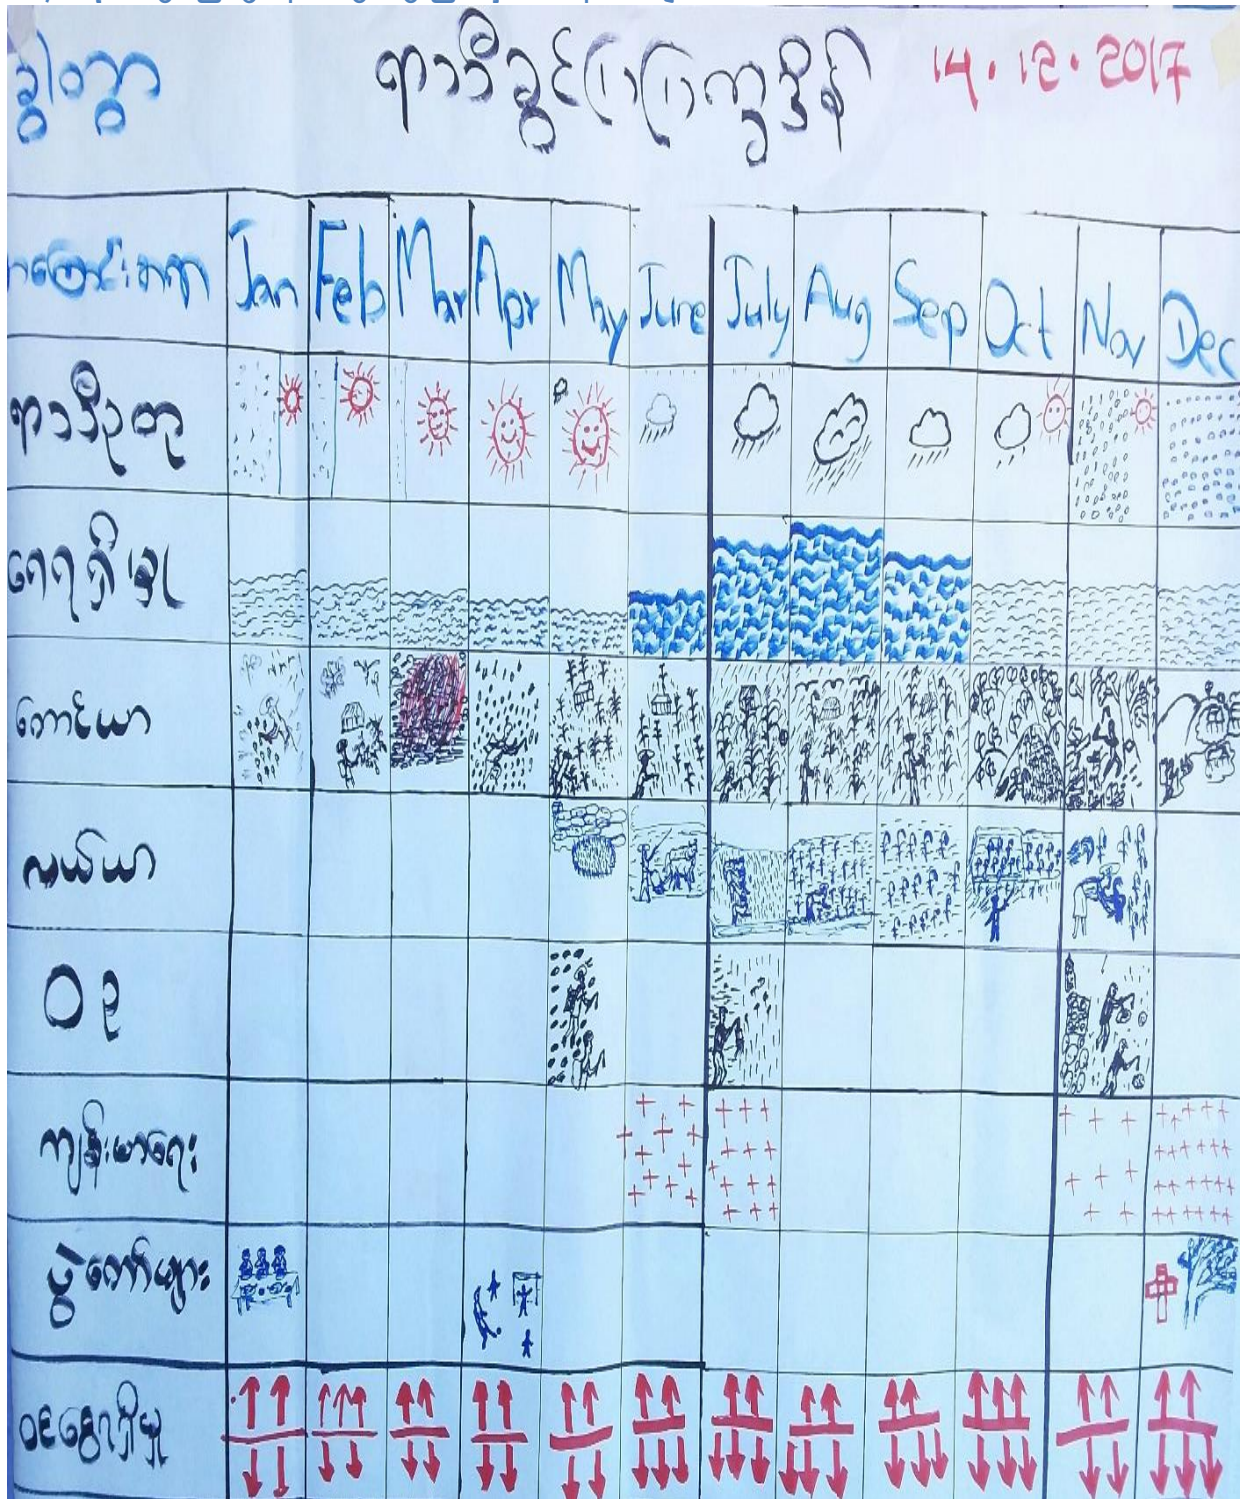 ရာသီခွင်ပြပြက္ခဒိန် 14.12.2017
Jan Feb Mar Apr May June July Aug Sep Oct Nov Dec
ရာသီဥတု
ရေရရှိမှု
တောင်ယာ
လယ်ယာ
ဝဥ
ကျန်းမာရေး
ပွဲတော်များ
ဝင်ငွေရရှိမှု